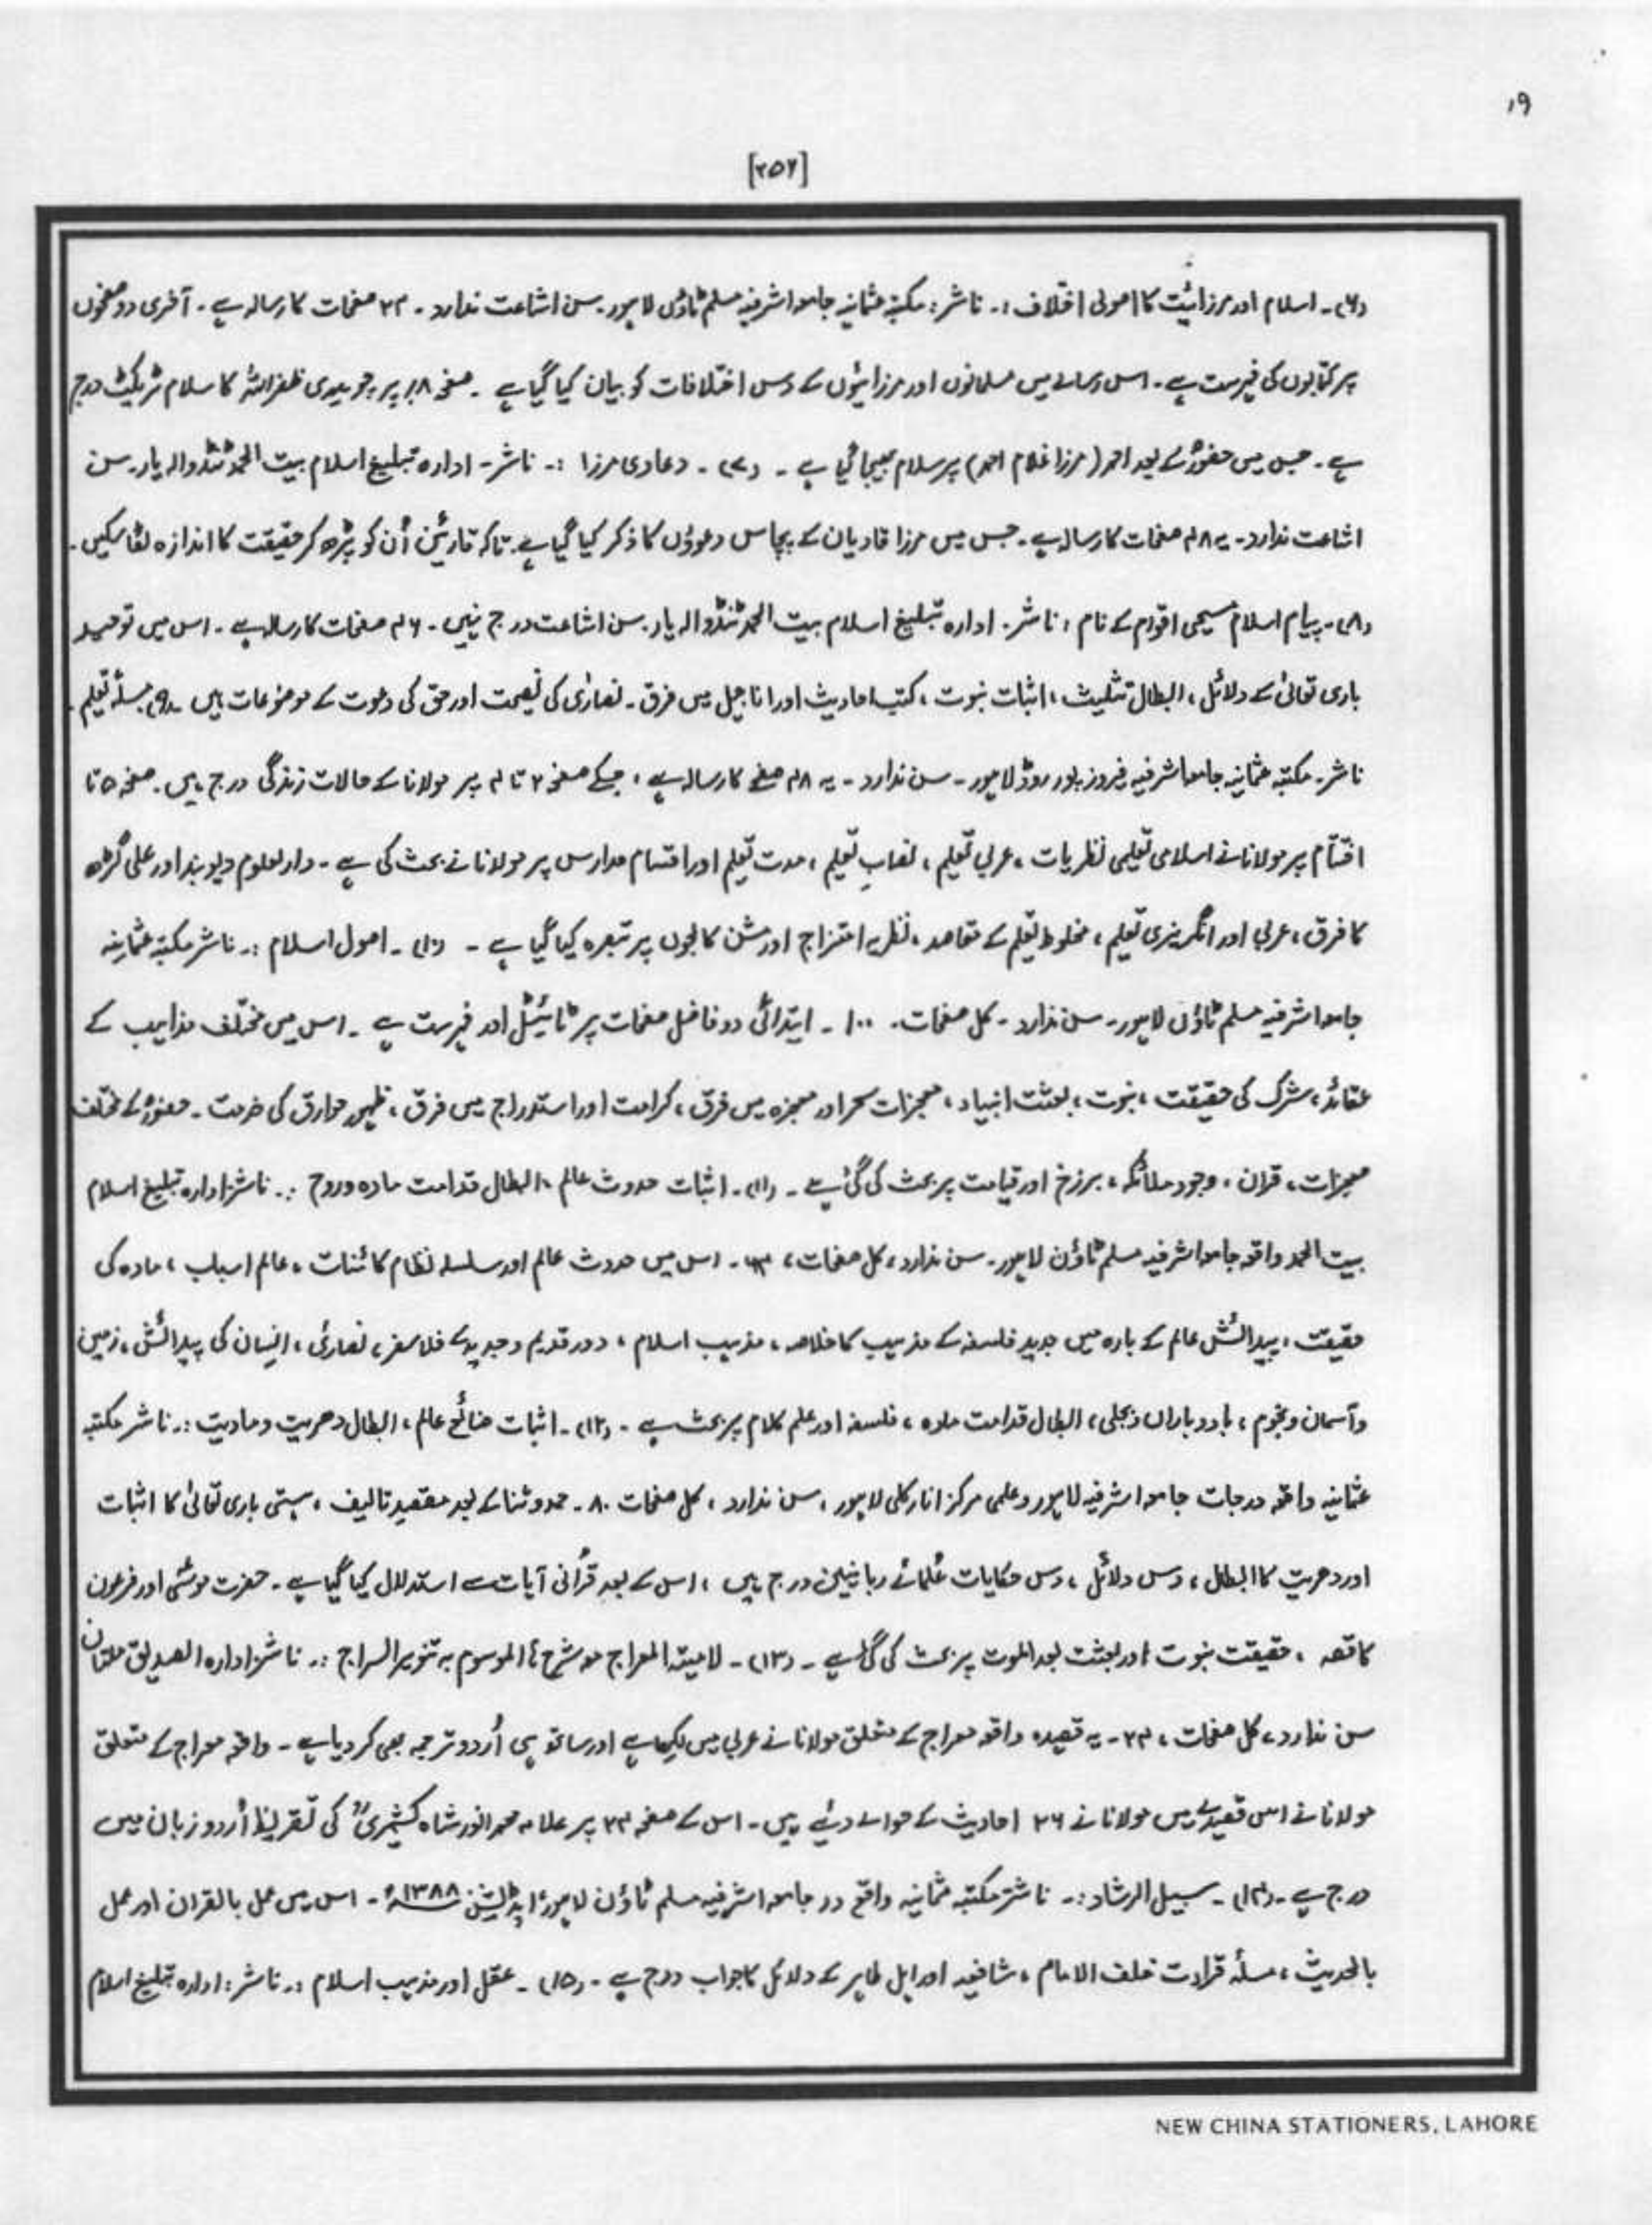 ۱۹
[۲۵۶]
(۶)۔ اسلام اور مرزائیت کا اصولی اختلاف :۔ ناشر : مکتبہ عثمانیہ جامعہ اشرفیہ مسلم ٹاؤن لاہور۔ سن اشاعت ندارد ۔ ۳۲ صفحات کا رسالہ ہے ۔ آخری دو صفحوں
پر کتابوں کی فہرست ہے ۔ اس رسالے میں مسلمانوں اور مرزائیوں کے دس اختلافات کو بیان کیا گیا ہے ۔ صفحہ ۱۸ پر چوہدری ظفراللہ کا سلام ٹریکٹ درج
ہے ۔ جس میں حضورؐ کے بعد احمد (مرزا غلام احمد) پر سلام بھیجا گیا ہے ۔ (۷) ۔ دعاوی مرزا :۔ ناشر ۔ ادارہ تبلیغ اسلام بیت الحمد ٹنڈوالہ یار۔ سن
اشاعت ندارد ۔ یہ ۴۸ صفحات کا رسالہ ہے ۔ جس میں مرزا قادیان کے پچاس دعوؤں کا ذکر کیا گیا ہے۔ تاکہ قارئین اُن کو پڑھ کر حقیقت کا اندازہ لگا سکیں ۔
(۸)۔ پیام اسلام مسیحی اقوام کے نام : ناشر۔ ادارہ تبلیغ اسلام بیت الحمد ٹنڈوالہ یار۔ سن اشاعت درج نہیں ۔ ۴۶ صفحات کا رسالہ ہے ۔ اس میں توحید
باری تعالیٰ کے دلائل ، ابطال تثلیث ، اثبات نبوت ، کتب احادیث اور اناجیل میں فرق ۔ نصاریٰ کی نصیحت اور حق کی دعوت کے موضوعات ہیں ۔ (۹) مسئلہ تعلیم ۔
ناشر۔ مکتبہ عثمانیہ جامعہ اشرفیہ فیروز پور روڈ لاہور ۔ سن ندارد ۔ یہ ۴۸ صفحے کا رسالہ ہے ، جسکے صفحہ ۲ تا ۴ پر مولانا کے حالات زندگی درج ہیں ۔ صفحہ ۵ تا
اختتام پر مولانا نے اسلامی تعلیمی نظریات ، عربی تعلیم ، نصابِ تعلیم ، مدت تعلیم اور اقسام مدارس پر مولانا نے بحث کی ہے ۔ دارلعلوم دیوبند اور علی گڑھ
کا فرق ، عربی اور انگریزی تعلیم ، مخلوط تعلیم کے مقاصد ، نظریہ امتزاج اور مشن کالجوں پر تبصرہ کیا گیا ہے ۔ (۱۰) ۔ اصول اسلام :۔ ناشر مکتبہ عثمانیہ
جامعہ اشرفیہ مسلم ٹاؤن لاہور ۔ سن ندارد ۔ کل صفحات ۔ ۱۰۰ ۔ ابتدائی دو فاضل صفحات پر ٹائیٹل اور فہرست ہے ۔ اس میں مختلف مذاہب کے
عقائد ، شرک کی حقیقت ، نبوت ، بعثت انبیاء ، معجزات سحر اور معجزہ میں فرق ، کرامت اور استدراج میں فرق ، ظہور خوارق کی ۔ حضورؐ کے مختلف
معجزات ، قرآن ، وجود ملائکہ ، برزخ اور قیامت پر بحث کی گئی ہے ۔ (۱۱)۔ اثبات حدوث عالم ، ابطال قدامت مادہ و روح :۔ ناشر: ادارہ تبلیغ اسلام
بیت الحمد واقع جامعہ اشرفیہ مسلم ٹاؤن لاہور ۔ سن ندارد ، کل صفحات ، ۔ اس میں حدوث عالم اور سلسلہ نظام کائنات ، عالم اسباب ، مادہ کی
حقیقت ، پیدائش عالم کے بارہ میں جدید فلسفہ کے مذہب کا خلاصہ ، مذہب اسلام ، دور قدیم و جدید کے فلاسفر ، نصاریٰ ، انسان کی پیدائش ، زمین
و آسمان و نجوم ، باد و باراں و بجلی ، ابطال قدامت مادہ ، فلسفہ اور علم کلام پر بحث ہے ۔ (۱۲) ۔ اثبات صانع عالم ، ابطال دھریت و مادیت :۔ ناشر مکتبہ
عثمانیہ واقع درجات جامعہ اشرفیہ لاہور و علمی مرکز انارکلی لاہور ، سن ندارد ، کل صفحات ۸۰ ۔ حمد و ثنا کے بعد مقصد تالیف ، ہستی باری تعالیٰ کا اثبات
اور دھریت کا ابطال ، دس دلائل ، دس حکایات عُلمائے ربانیین درج ہیں ، اس کے بعد قُرآنی آیات سے استدلال کیا گیا ہے ۔ حضرت موسیٰ اور فرعون
کا قصہ ، حقیقت نبوت اور بعثت بعد الموت پر بحث کی گئی ہے ۔ (۱۳) ۔ لامیتہ المعراج مع شرح الموسوم بہ تنویر السراج :۔ ناشر: ادارہ الصدیق ملتان
سن ندارد ، کل صفحات ، ۳۲ ۔ یہ قصیدہ واقعہ معراج کے متعلق مولانا نے عربی میں لکھا ہے اور ساتھ ہی اُردو ترجمہ بھی کر دیا ہے ۔ واقعہ معراج کے متعلق
مولانا نے اس قصیدے میں مولانا نے ۲۶ احادیث کے حوالے دیئے ہیں ۔ اس کے صفحہ ۳۲ پر علامہ محمد انور شاہ کشمیریؒ کی تقریظ اُردو زبان میں
درج ہے ۔ (۱۴) ۔ سبیل الرشاد :۔ ناشر: مکتبہ عثمانیہ واقع در جامعہ اشرفیہ مسلم ٹاؤن لاہور ، ایڈیشن ۱۳۸۸ھ ۔ اس میں عمل بالقرآن اور عمل
بالحدیث ، مسئلہ قرأت خلف الامام ، شافعیہ اور اہل ظاہر کے دلائل کا جواب درج ہے ۔ (۱۵) ۔ عقل اور مذہب اسلام :۔ ناشر : ادارہ تبلیغ اسلام
NEW CHINA STATIONERS, LAHORE